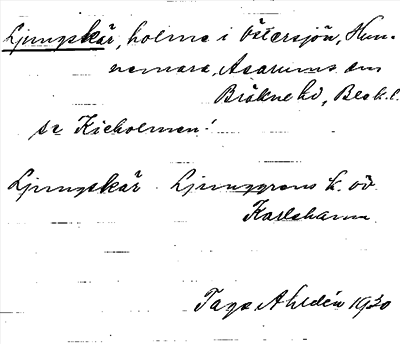 Ljungskär, holme i Östersjön, Hun-
nemara, Asarums sn
Bräkne hd, Blek. l.
se Kieholmen!
Ljungskär Ljunggrens k. öv.
Karlshamn
Tage Ahldén 1930